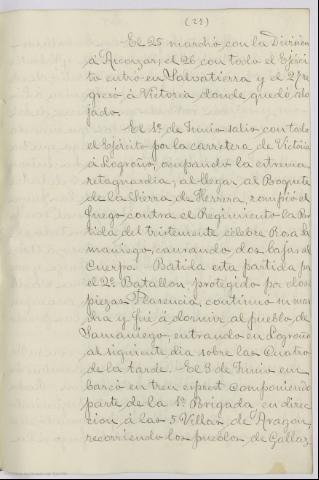 (25)
El 25 marchó con la División
á Arcazar; el 26 con todo el Ejérci
to entró en Salvatierra y el 27 re
gresó á Victoria donde quedó alo
jado.
El 1º de Junio salio con todo
el Ejército por la carretera de Victoria
á Logroño, ocupando la extrema
retaguardia; al llegar al Boquete
de la Sierra de Herrera, rompió el
fuego contra el Regimiento la Par
tida del tristemente célebre Rosa Sa
maniego, causando dos bajas al
Cuerpo. Batida esta partida por
el 2º Batallon protegido por dos
piezas Plasencia, continuó su mar
cha y fué á dormir al pueblo de
Samaniego, entrando en Logroño
al siguiente dia sobre las Cuatro
de la tarde. El 3 de Junio em
barcó en tren exprest componiendo
parte de la 1ª Brigada en direc
cion á las 5 Villas de Aragon,
recorriendo los pueblos de Gallur